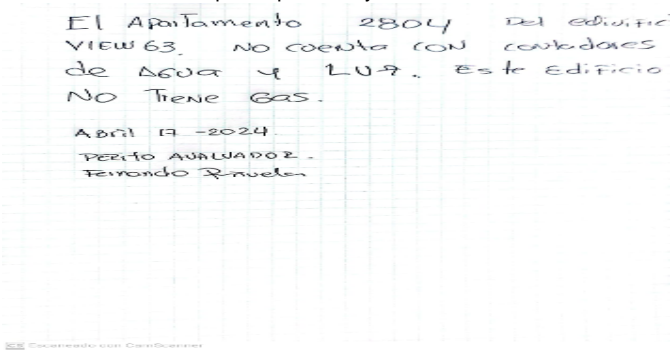 El Apartamento 2804 Del edivific
VIEW 63. No cuenta con contadores
de Agua y Luz. Este Edificio
No Tiene Gas.
Abril 17 -2024
Perito Avaluador.
Fernando
CS Escaneado con CamScanner